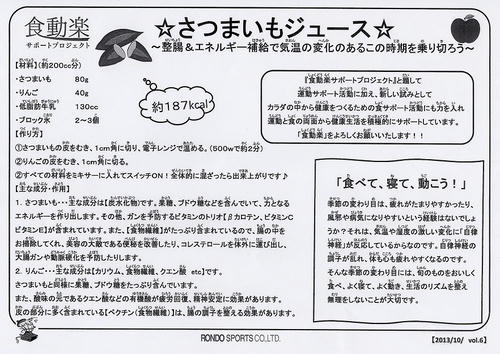 食動楽
サポートプロジェクト
☆さつまいもジュース☆
～整腸＆エネルギー補給で気温の変化のあるこの時期を乗り切ろう～
【材料】（約200cc分）
・さつまいも 80g
・りんご 40g
・低脂肪牛乳 130cc
・ブロック氷 2～3個
約187kcal
『食動楽サポートプロジェクト』と題して
運動サポート活動に加え、新しい試みとして
カラダの中から健康をつくるための食サポート活動にも力を入れ
運動と食の両面から健康生活を積極的にサポートしています。
『食動楽』をよろしくお願いいたします！！
【作り方】
①さつまいもの皮をむき、1cm角に切り、電子レンジで温める。（500wで約2分）
②りんごの皮をむき、1cm角に切る。
②すべての材料をミキサーに入れてスイッチON！全体的に混ざったら出来上がりです♪
【主な成分・作用】
1. さつまいも・・・主な成分は【炭水化物】です。果糖、ブドウ糖などを含んでいて、力となる
エネルギーを作り出します。その他、ガンを予防するビタミンのトリオ【βカロテン、ビタミンC
ビタミンE】が含まれています。また、【食物繊維】がたっぷり含まれているので、腸の中を
お掃除してくれ、美容の大敵である便秘を改善したり、コレステロールを体外に運び出し、
大腸ガンや動脈硬化を予防したりします。
2. りんご・・・主な成分は【カリウム、食物繊維、クエン酸 etc】です。
さつまいもと同様に果糖、ブドウ糖をたっぷり含んでいます。
また、酸味の元であるクエン酸などの有機酸が疲労回復、精神安定に効果があります。
皮の部分に多く含まれている【ペクチン（食物繊維）】は、腸の調子を整える効果があります。
「食べて、寝て、動こう！」
季節の変わり目は、疲れがたまりやすかったり、
風邪や病気になりやすいという経験はないでしょ
うか？それは、気温や湿度の激しい変化に『自律
神経』が反応しているからなのです。自律神経の
調子が乱れ、体も心も疲れやすくなるのです。
そんな季節の変わり目には、旬のものをおいしく
食べ、よく寝て、よく動き、生活のリズムを整え
無理をしないことが大切です。
RONDO SPORTS CO.,LTD.
【2013/10/ vol.6】